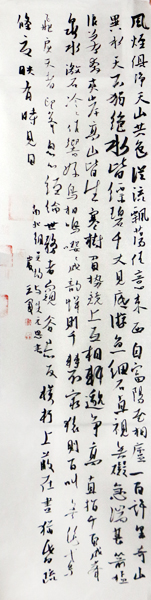 風煙俱淨天山共色從流飄蕩任意東西自富陽至桐廬一百許里奇山
異水天下獨絕水皆縹碧千丈見底游魚細石直視無礙急湍甚箭猛
浪若奔夾岸高山皆生寒樹負勢競上互相軒邈爭高直指千百成峰
泉水激石泠泠作響好鳥相鳴嚶嚶成韻蟬則千轉不窮猿則百叫無絕鳶
飛戾天者望峰息心經綸世務者窺谷忘反橫柯上蔽在晝猶昏疏
條交映有時見日